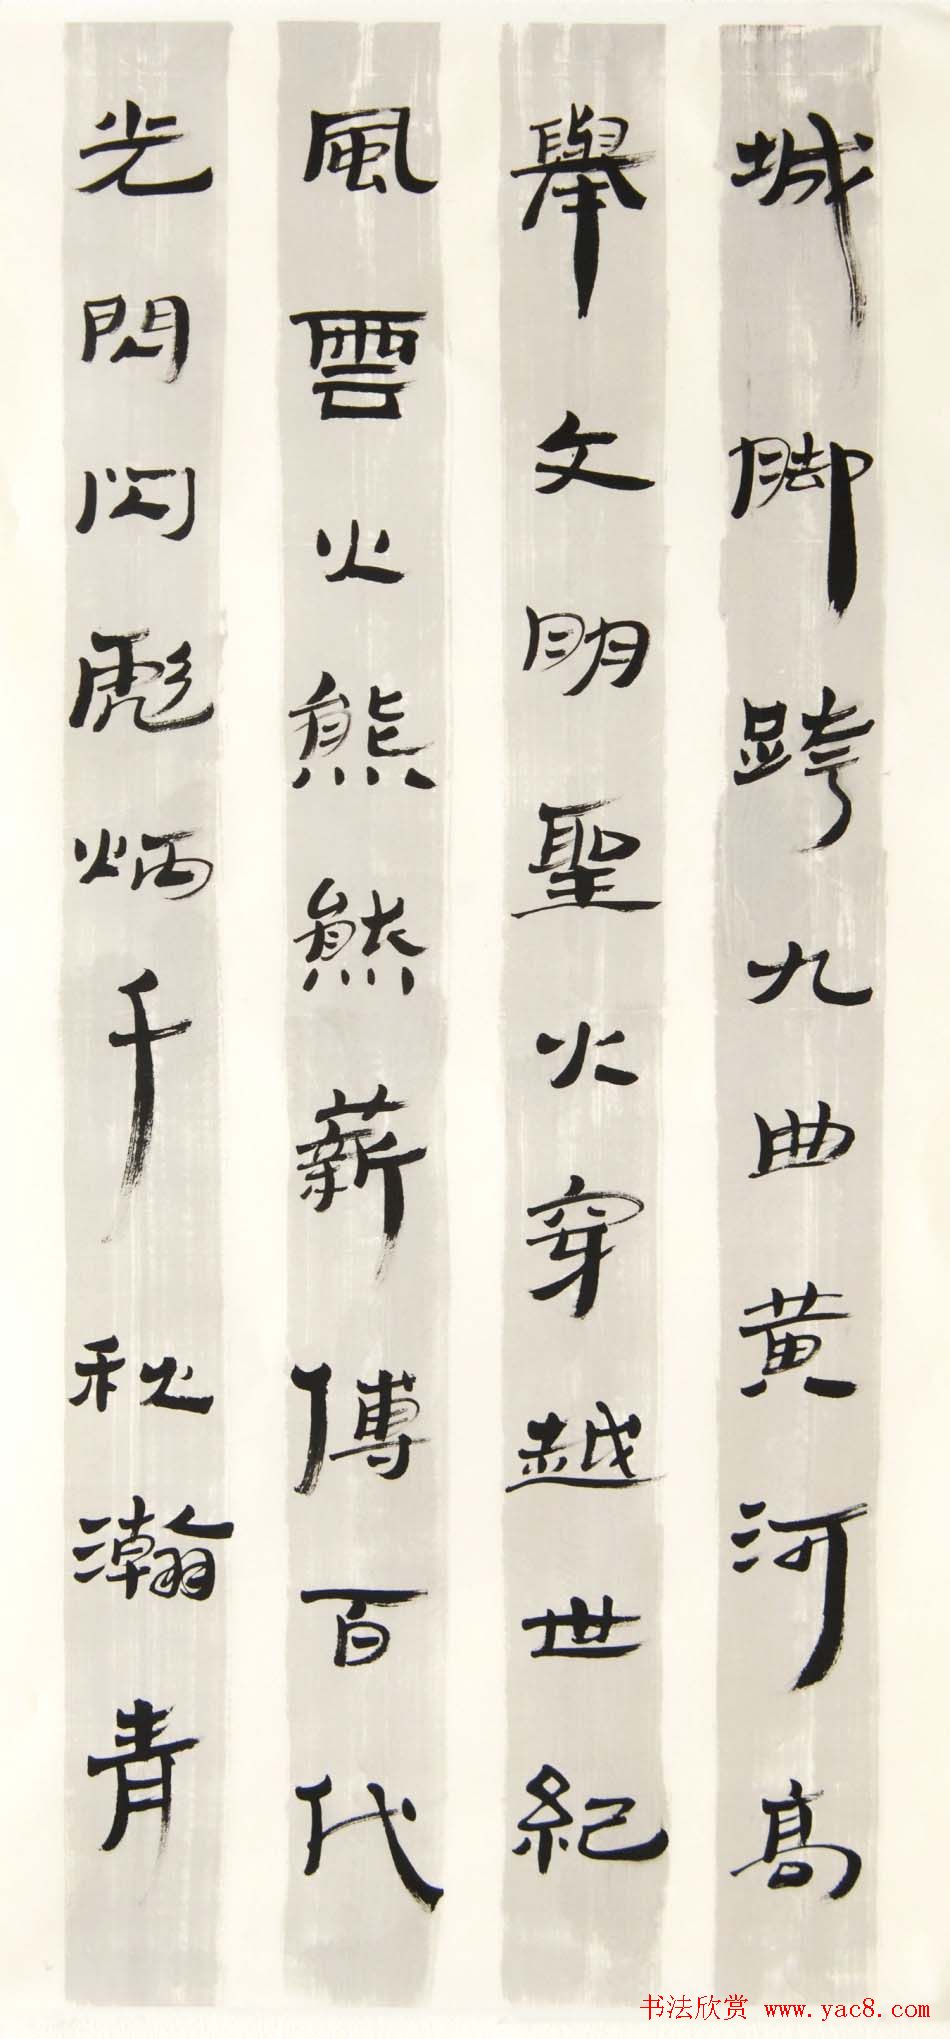 城脚跨九曲黄河高
舉文明聖火穿越世紀
風雲火熊熊薪傳百代
光閃閃彪炳千秋瀚青
书法欣赏 www.yac8.com